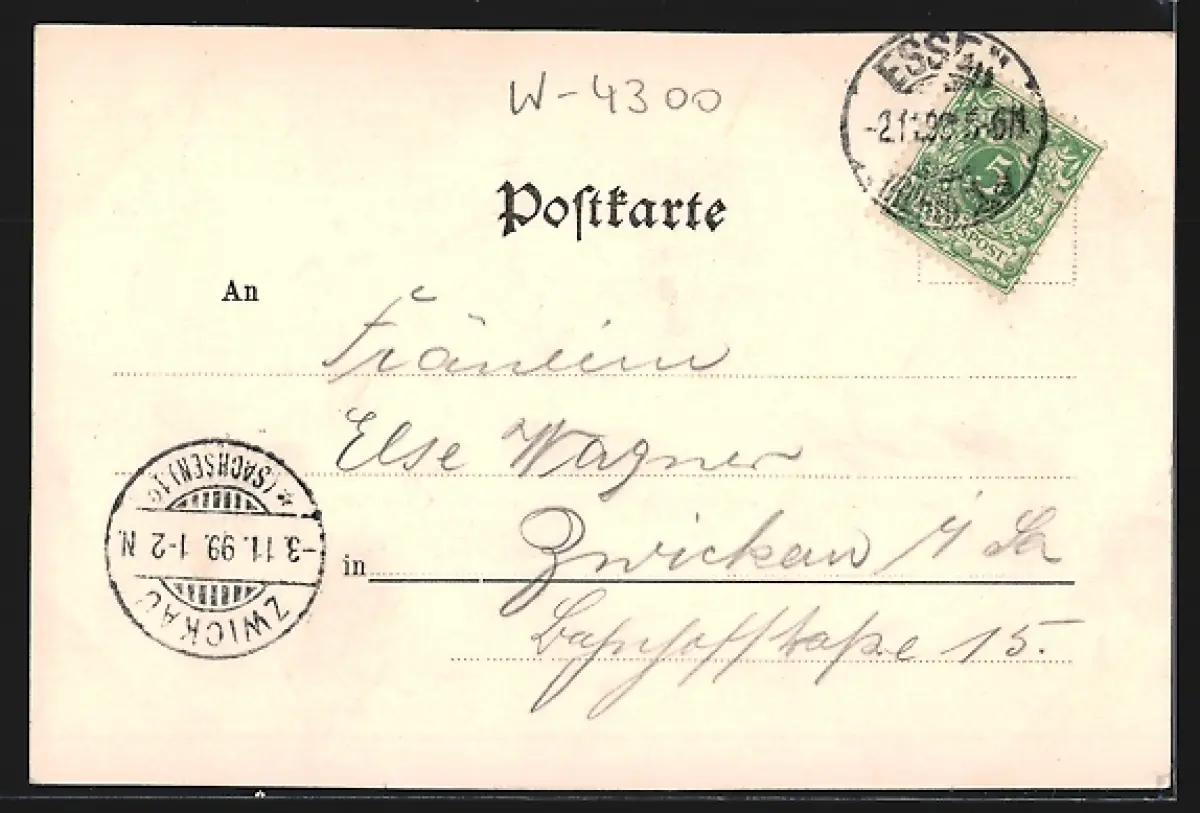 W-4300
ESSEN
-2.11.99 5-6N.
Postkarte
5
REICHSPOST
An
Fräulein
Else Wagner
in Zwickau i/Sa
Bahnhofstraße 15.
ZWICKAU
-3.11.99.1-2 N.
* (SACHSEN).1